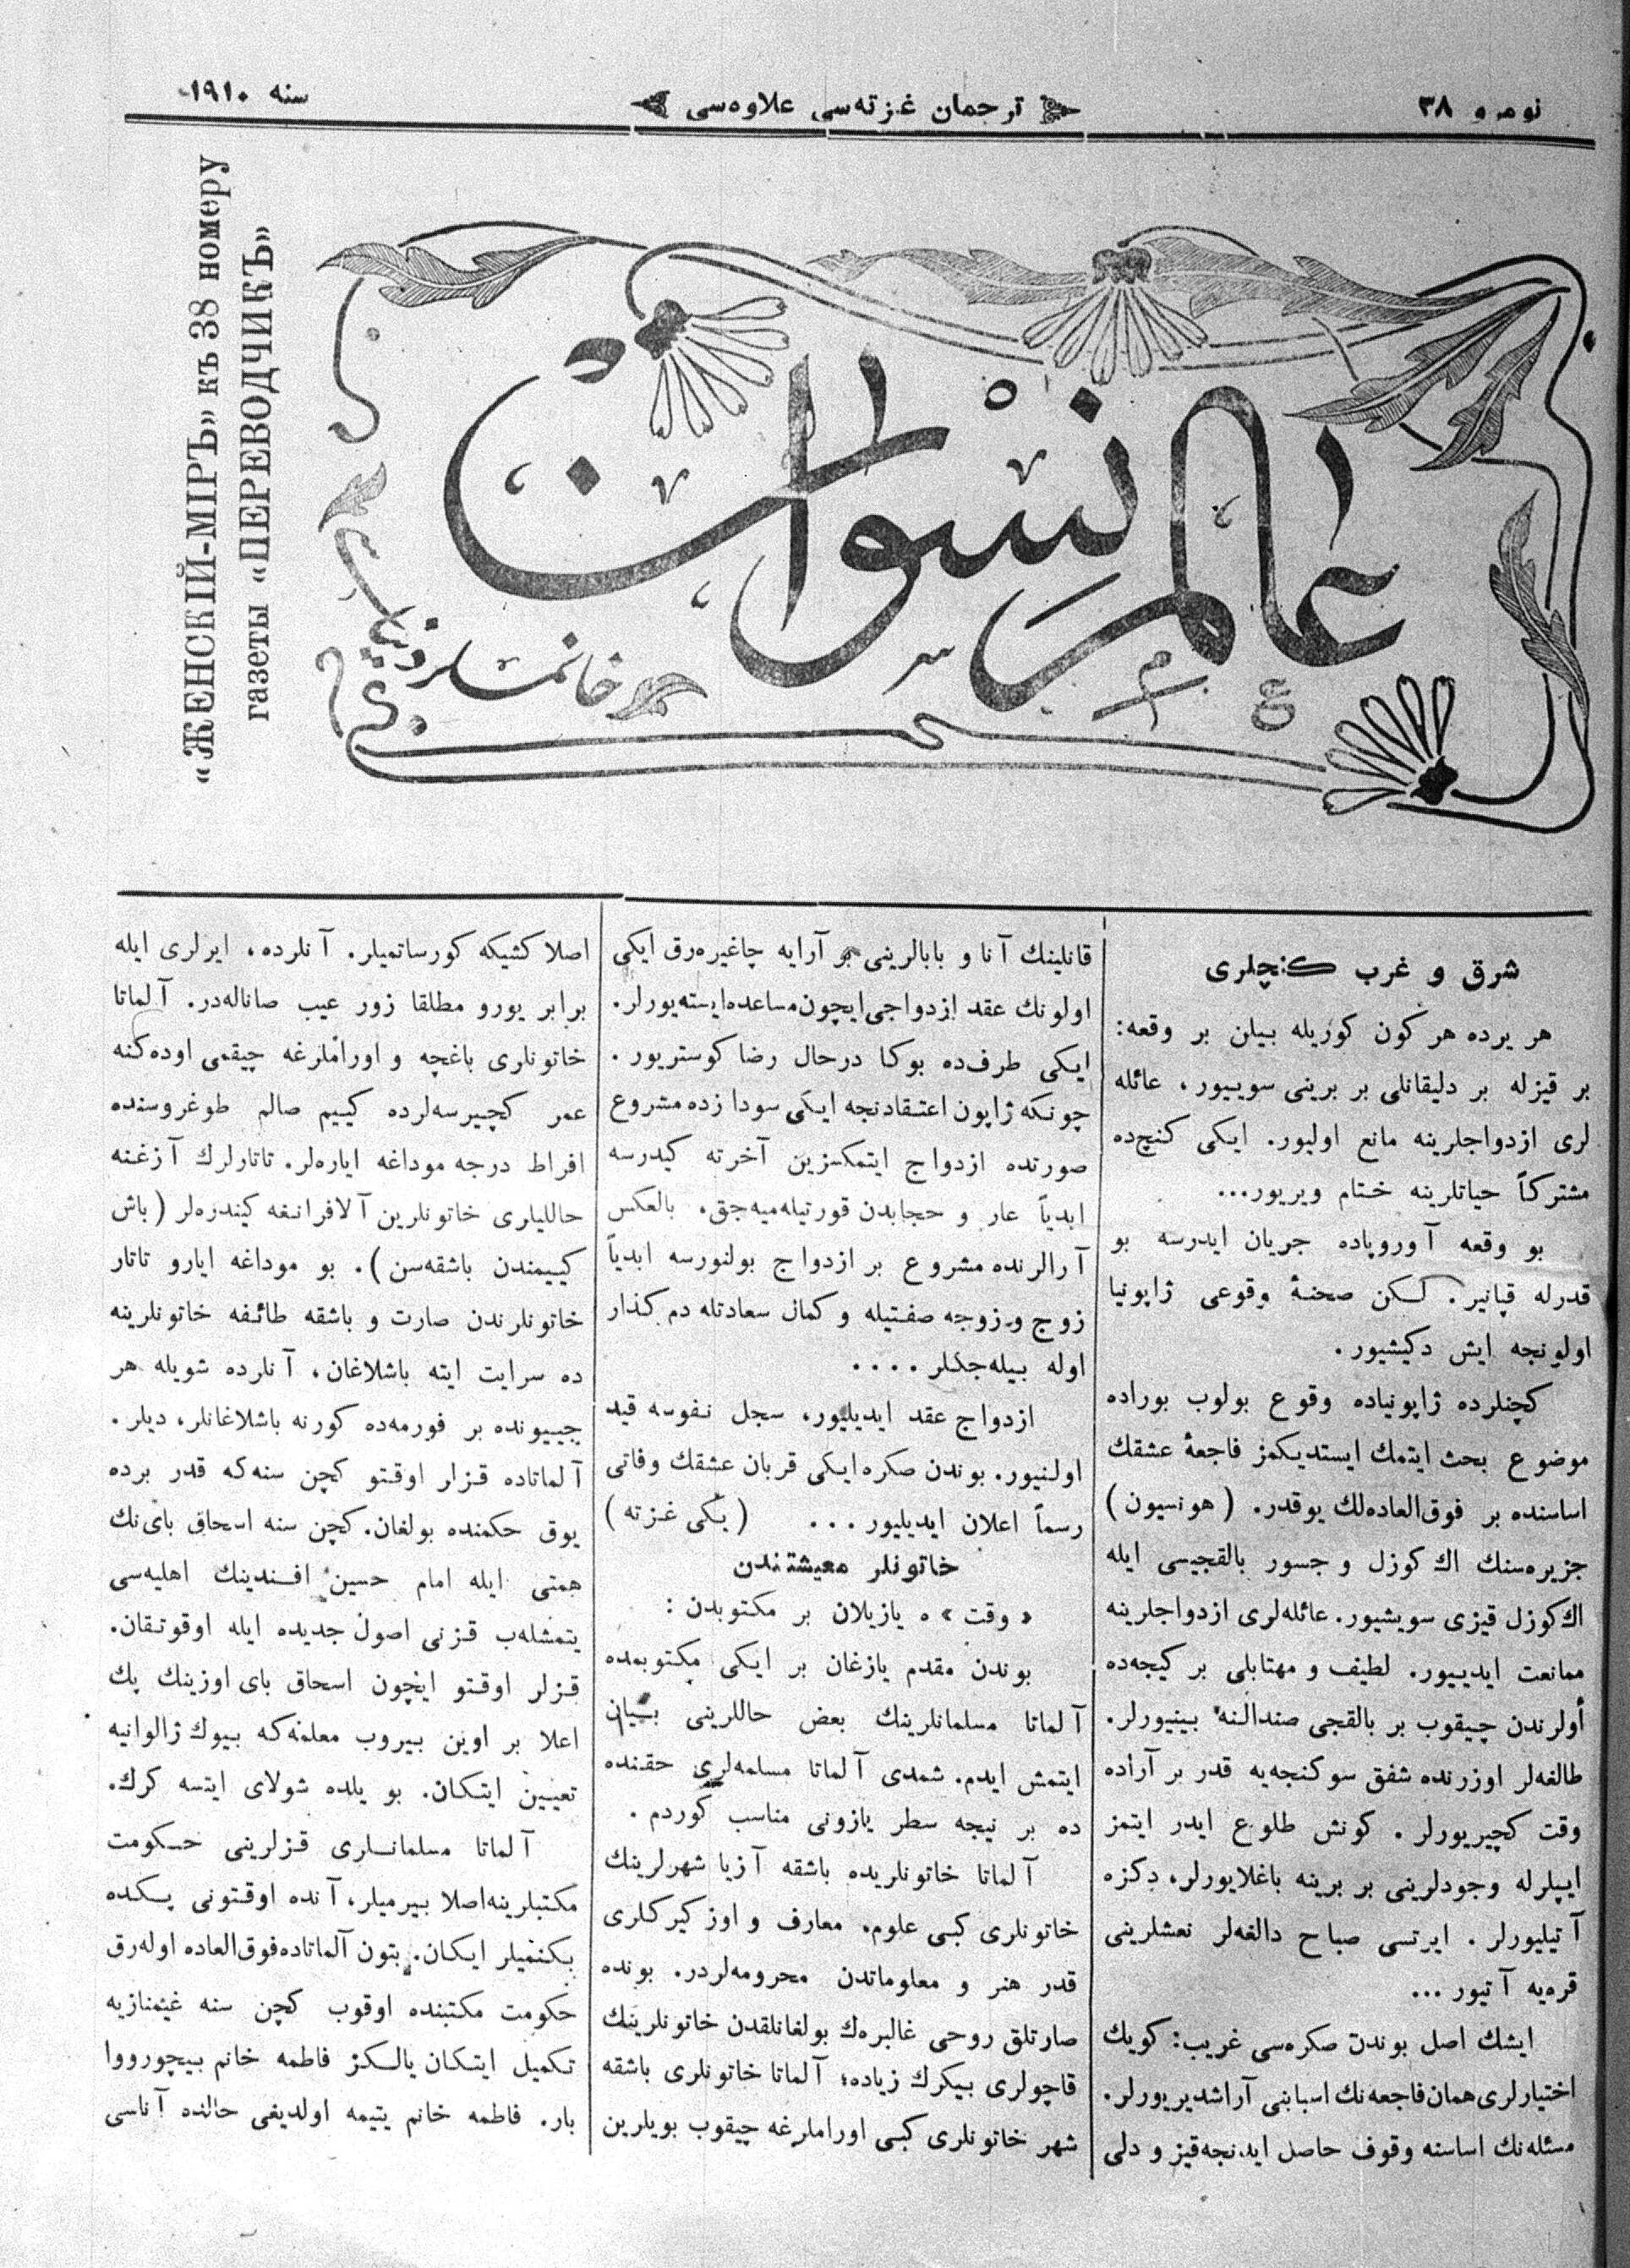 نومرو ٣٨
ترجمان غزته‌سی علاوه‌سی
سنه ١٩١٠
«ЖЕНСКІЙ-МІРЪ» къ 38 номеру
газеты «ПЕРЕВОДЧИКЪ»
عالم نسوان
خانملر دنیاسی
شرق و غرب كنجلری
هر یرده هر كون كوریله بیلن بر وقعه:
بر قیزله بر دلیقانلی بر برینی سوییور، عائله
لری ازدواجلرینه مانع اولیور. ایكی كنج‌ده
مشتركاً حیاتلرینه ختام ویریور...
بو وقعه آوروپاده جریان ایدرسه بو
قدرله قپانیر. لكن صحنهٔ وقوعی ژاپونیا
اولونجه ایش دكیشیور.
كچنلرده ژاپونیاده وقوع بولوب بوراده
موضوع بحث ایتمك ایستدیكمز فاجعهٔ عشقك
اساسنده بر فوق‌العاده‌لك یوقدر. (هونسیون)
جزیره‌سنك اك كوزل و جسور بالقجیسی ایله
اك كوزل قیزی سویشیور. عائله‌لری ازدواجلرینه
ممانعت ایدییور. لطیف و مهتابلی بر كیجه‌ده
أولرندن چیقوب بر بالقجی صندالنه بینیورلر.
طالغه‌لر اوزرنده شفق سوكنجه‌یه قدر بر آراده
وقت كچیریورلر. كونش طلوع ایدر ایتمز
ایپلرله وجودلرینی بر برینه باغلایورلر، دكزه
آتیلیورلر. ایرتسی صباح دالغه‌لر نعشلرینی
قره‌یه آتیور...
ایشك اصل بوندن صكره‌سی غریب: كویك
اختیارلری همان فاجعه‌نك اسبابنی آراشدیریورلر.
مسئله‌نك اساسنه وقوف حاصل ایدنجه قیز و دلی
قانلینك آنا و بابالرینی بر آرایه چاغیره‌رق ایكی
اولونك عقد ازدواجی ایچون مساعده ایسته‌یورلر.
ایكی طرف‌ده بوكا درحال رضا كوستریور.
چونكه ژاپون اعتقادنجه ایكی سودا زده مشروع
صورتده ازدواج ایتمكسزین آخرته كیدرسه
ابدیاً عار و حجابدن قورتیله‌میه‌جق. بالعكس
آرالرنده مشروع بر ازدواج بولنورسه ابدیاً
زوج و زوجه صفتیله و كمال سعادتله دم كذار
اوله بیله‌جكلر....
ازدواج عقد ایدیلیور، سجل نفوسه قید
اولنیور. بوندن صكره ایكی قربان عشقك وفاتی
رسماً اعلان ایدیلیور... (یكی غزته)
خاتونلر معیشتندن
«وقت» ه یازیلان بر مكتوبدن:
بوندن مقدم یازغان بر ایكی مكتوبمده
آلماتا مسلمانلرینك بعض حاللرینی بیان
ایتمش ایدم. شمدی آلماتا مسلمه‌لری حقنده
ده بر نیجه سطر یازونی مناسب كوردم.
آلماتا خاتونلریده باشقه آزیا شهرلرینك
خاتونلری كبی علوم، معارف و اوز كیركلری
قدر هنر و معلوماتدن محرومه‌لردر. بونده
صارتلق روحی غالبره‌ك بولغانلقدن خاتونلرینك
قاچولری بیكرك زیاده؛ آلماتا خاتونلری باشقه
شهر خاتونلری كبی اوراملرغه چیقوب بویلرین
اصلا كشیكه كورساتمیلر. آنلرده، ایرلری ایله
برابر یورو مطلقا زور عیب صاناله‌در. آلماتا
خاتونلری باغچه و اوراملرغه چیقمی اوده‌كنه
عمر كچیرسه‌لرده كییم صالم طوغروسنده
افراط درجه موداغه ایاره‌لر. تاتارلرك آزغنه
حاللیاری خاتونلرین آلافرانغه كیندزه‌لر (باش
كییمندن باشقه‌سن). بو موداغه ایارو تاتار
خاتونلرندن صارت و باشقه طائفه خاتونلرینه
ده سرایت ایته باشلاغان، آنلرده شویله هر
جییونده بر فورمه‌ده كورنه باشلاغانلر، دیلر.
آلماتاده قزلر اوقتو كچن سنه‌كه قدر برده
یوق حكمنده بولغان. كچن سنه اسحاق بای‌نك
همتی ایله امام حسین افندینك اهلیه‌سی
یتمشله‌ب قزنی اصول جدیده ایله اوقوتقان.
قزلر اوقتو ایچون اسحاق بای اوزینك پك
اعلا بر اوین بیروب معلمه‌كه بیوك ژالوانیه
تعیین ایتكان. بو یلده شولای ایتسه كرك.
آلماتا مسلمانلری قزلرینی حكومت
مكتبلرینه اصلا بیرمیلر، آنده اوقتونی پكده
بكنمیلر ایكان. بتون آلماتاده فوق‌العاده اوله‌رق
حكومت مكتبنده اوقوب كچن سنه غیمنازیه
تكمیل ایتكان یالكز فاطمه خانم بیچورووا
بار. فاطمه خانم یتیمه اولدیغی حالده آناسی